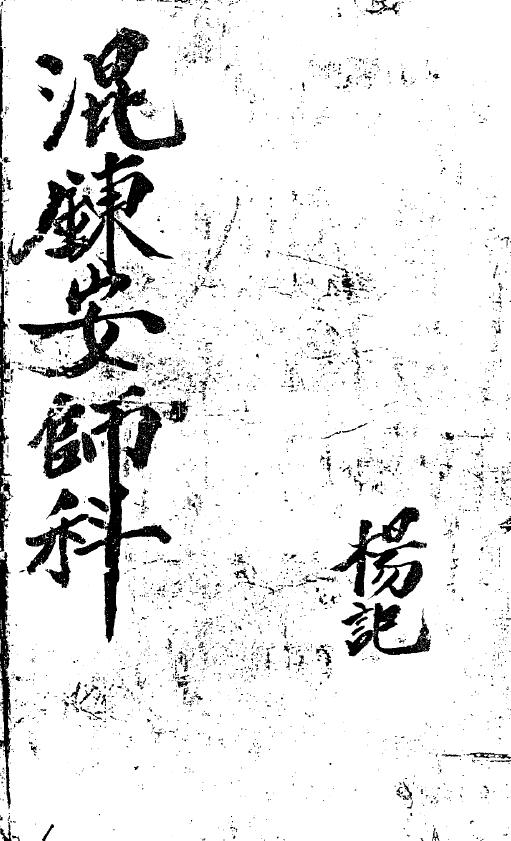 楊記
混鍊安師科